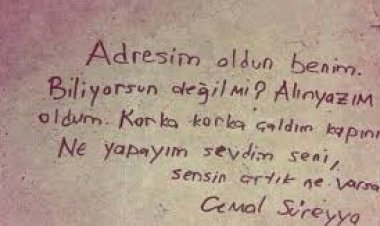 Adresim oldun benim.
Biliyorsun değil mi? Alınyazım
oldum. Korka korka çaldım kapını
Ne yapayım sevdim seni,
sensin artık ne varsa
Cemal Süreyya